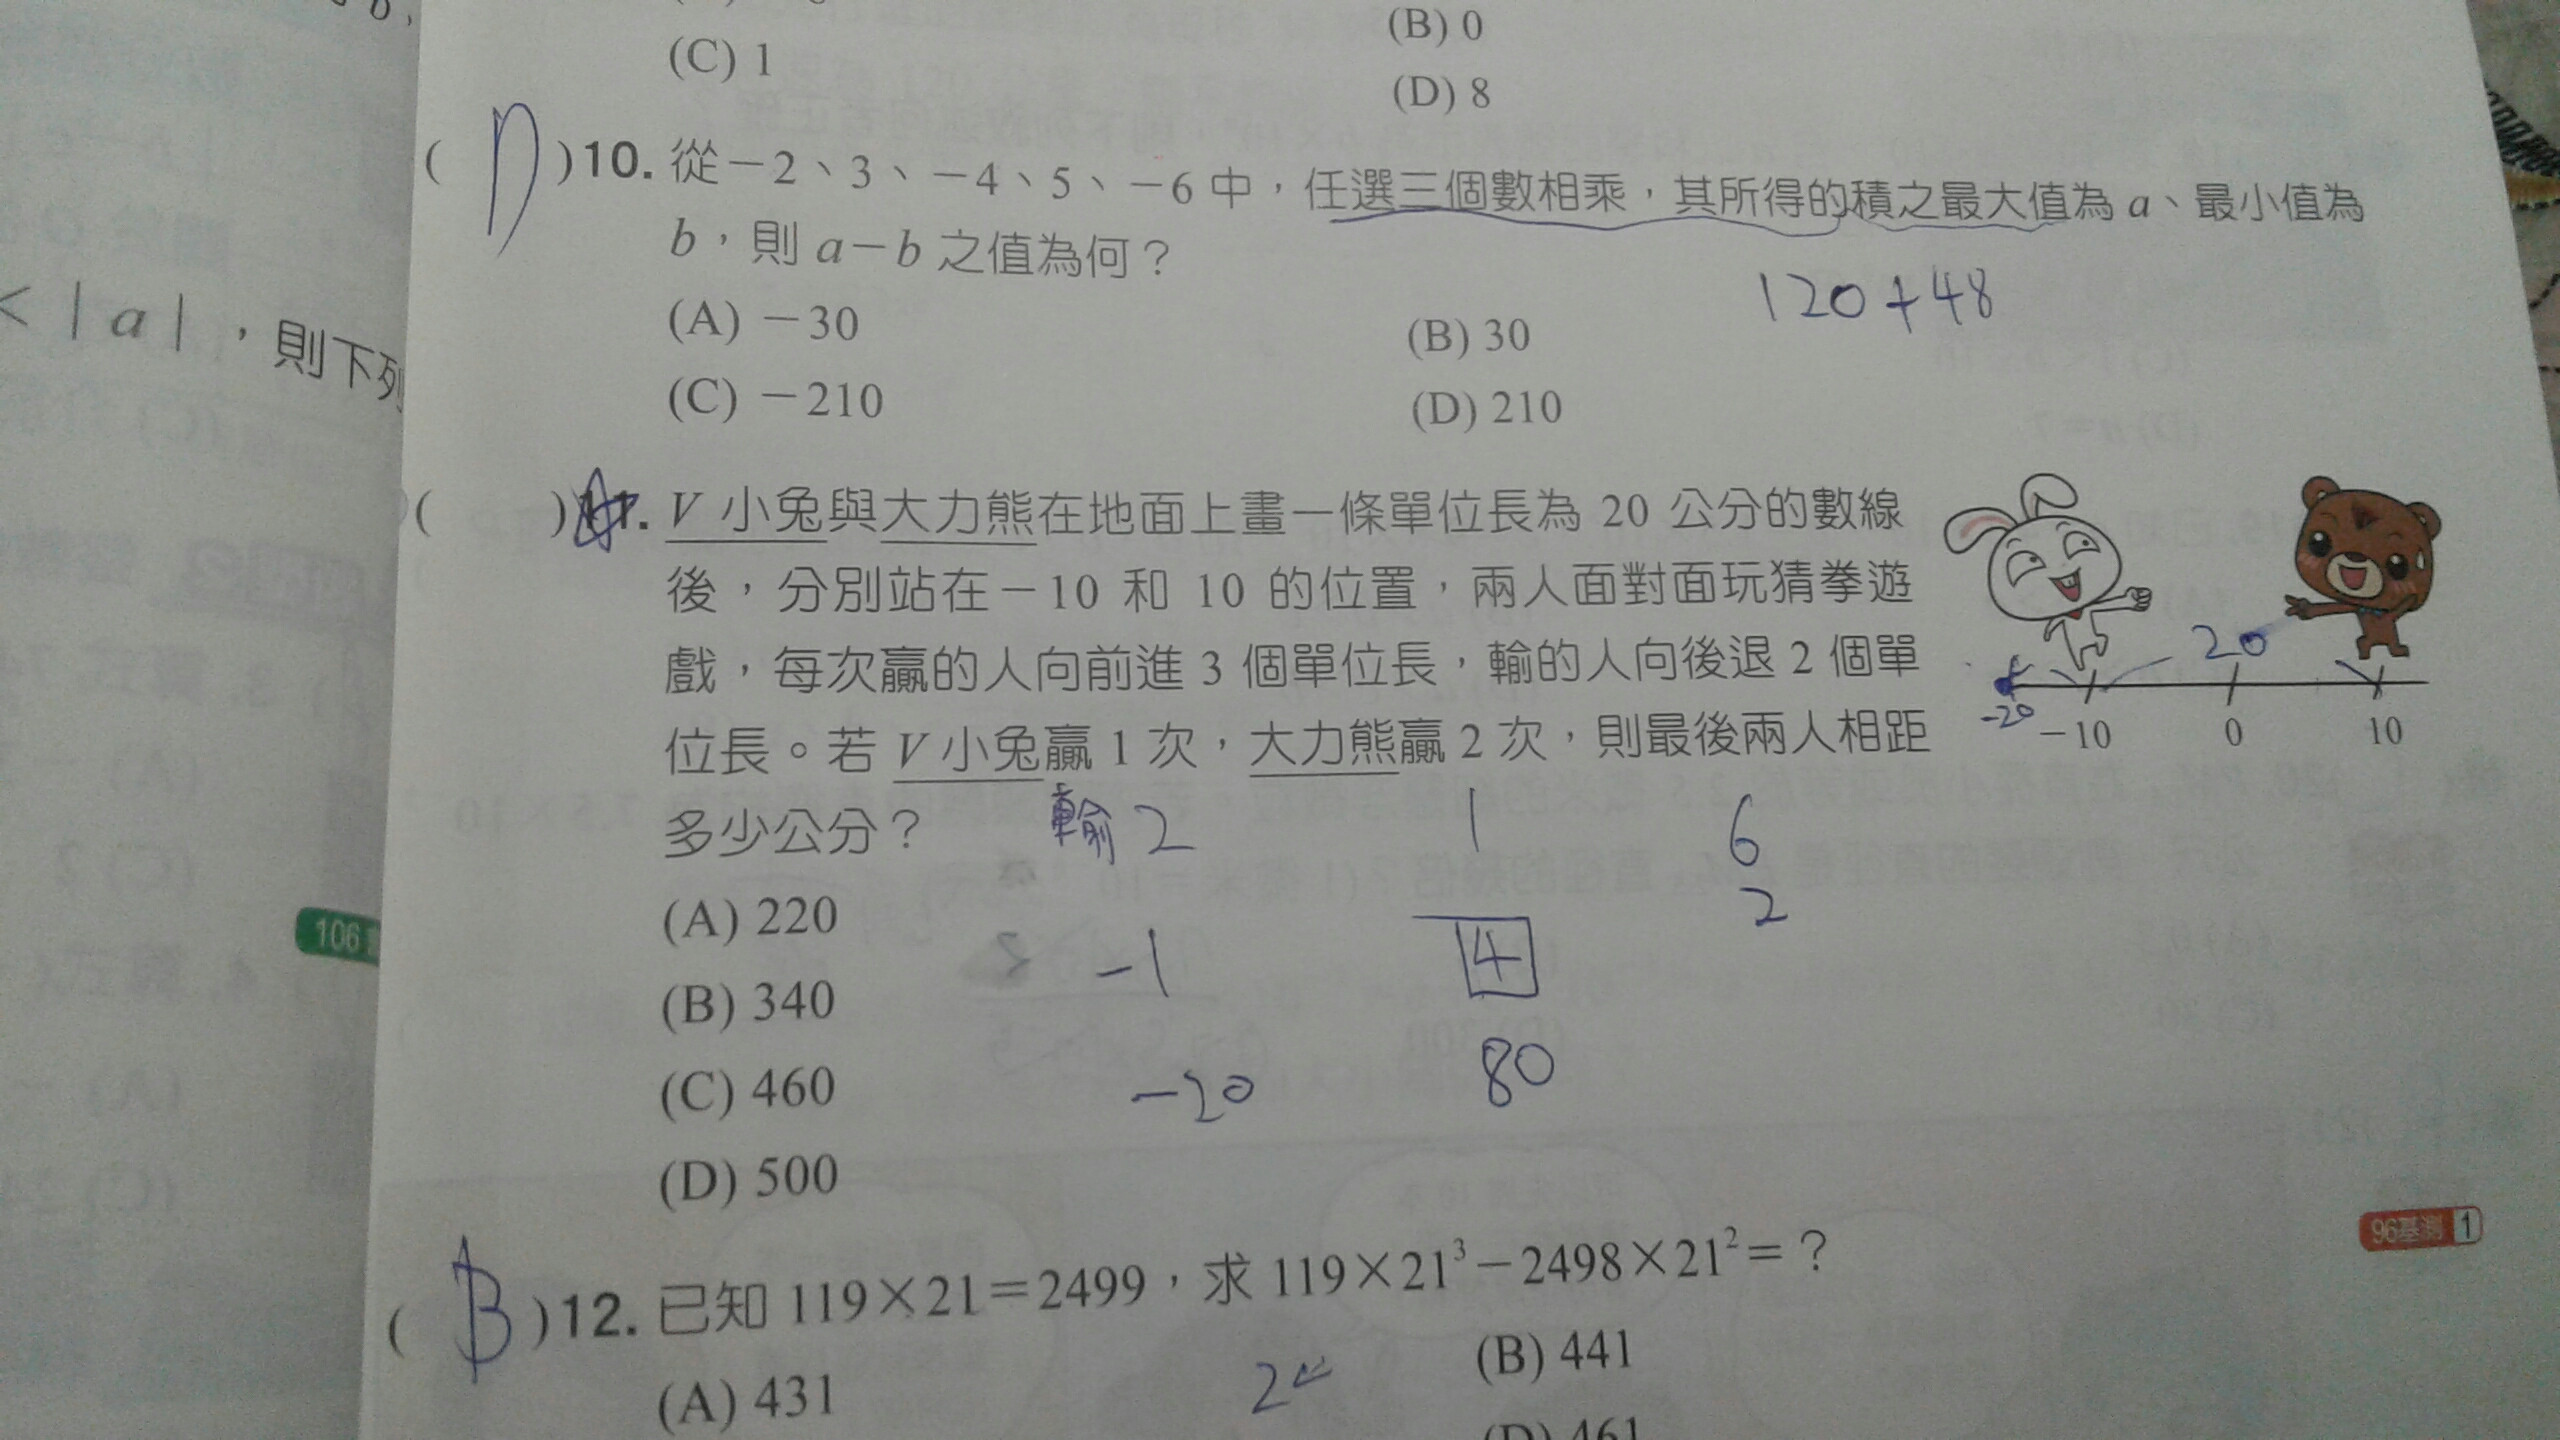 b,
(B) 0
(C) 1
(D) 8
( D )10. 從－2、3、－4、5、－6中，任選三個數相乘，其所得的積之最大值為 a、最小值為
b，則 a－b 之值為何？
120+48
(A) －30
(B) 30
(C) －210
(D) 210
< | a | ，則下列
( )11. V 小兔與大力熊在地面上畫一條單位長為 20 公分的數線
後，分別站在－10 和 10 的位置，兩人面對面玩猜拳遊
戲，每次贏的人向前進 3 個單位長，輸的人向後退 2 個單
位長。若 V 小兔贏 1 次，大力熊贏 2 次，則最後兩人相距
多少公分？
20
-20
－10 0 10
輸 2 1 6
2
(A) 220
-1 4
(B) 340
80
(C) 460
-20
(D) 500
106
96基測 1
( B )12. 已知 119×21＝2499，求 119×21³－2498×21²＝？
(A) 431
(B) 441
(D) 461